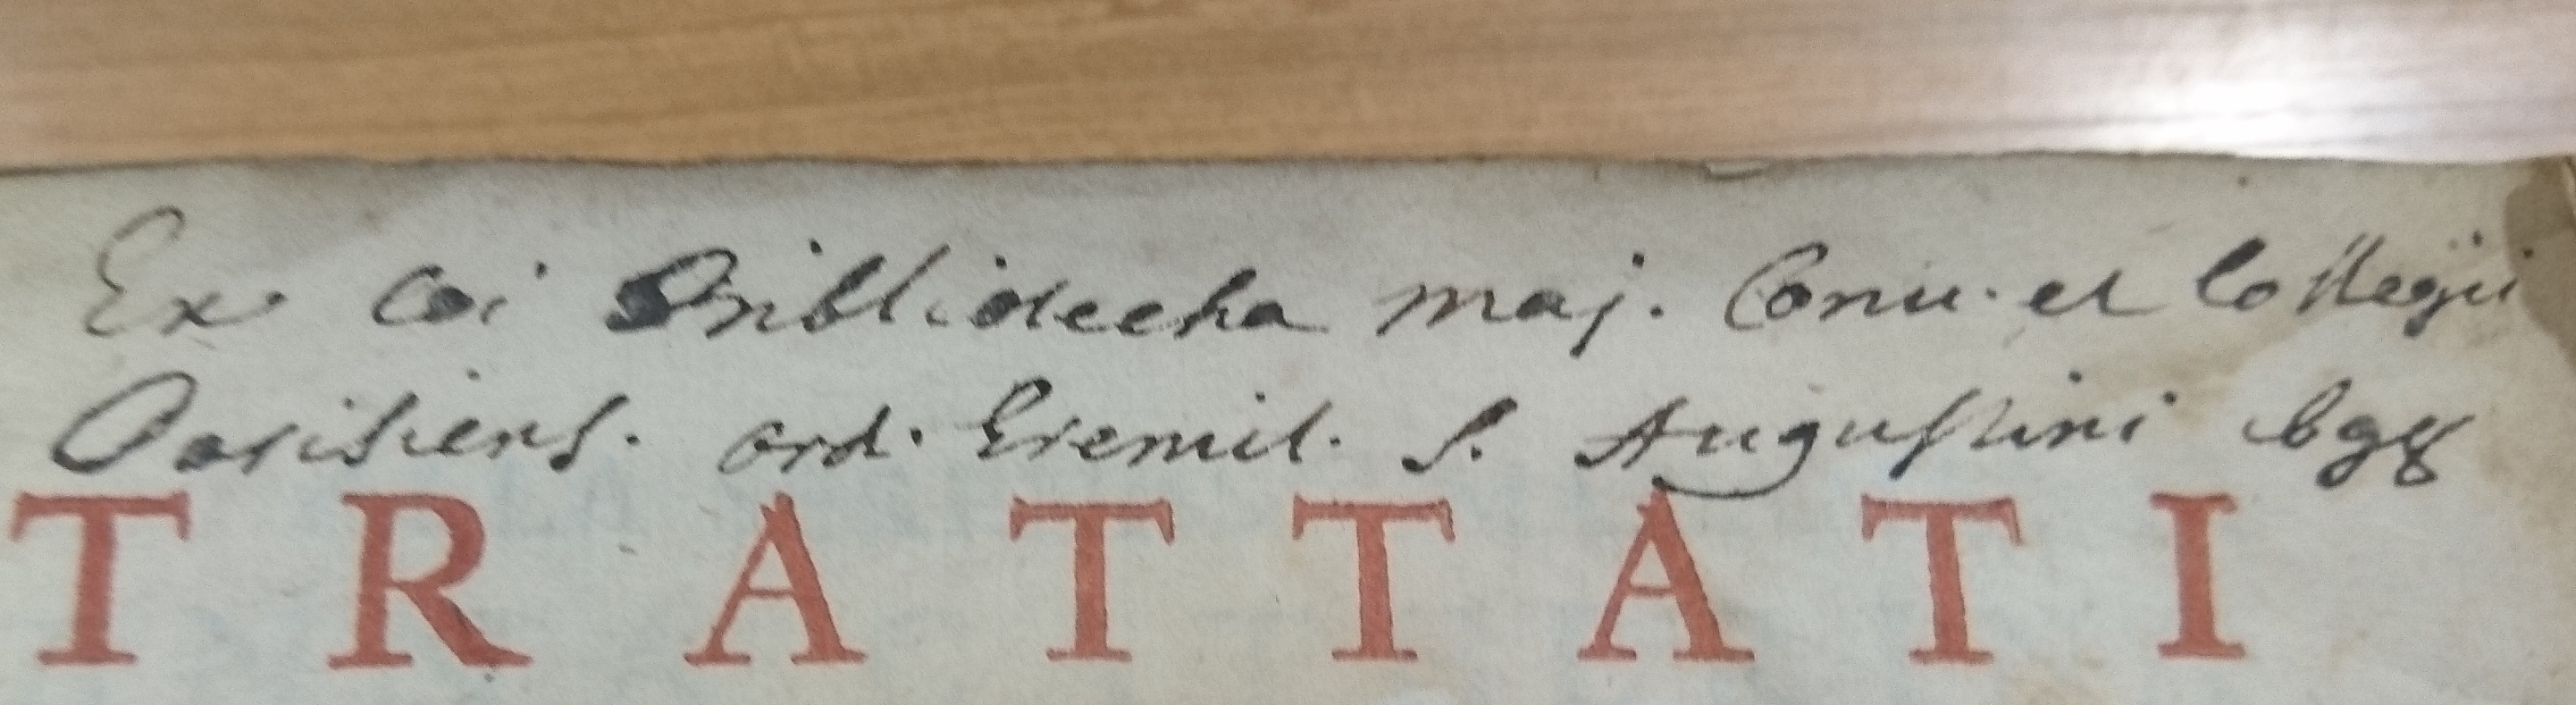 Ex Coi Bibliotecha maj. Conu. et Collegii
Parisiens. ord. Eremit. S. Augustini
TRATTATI